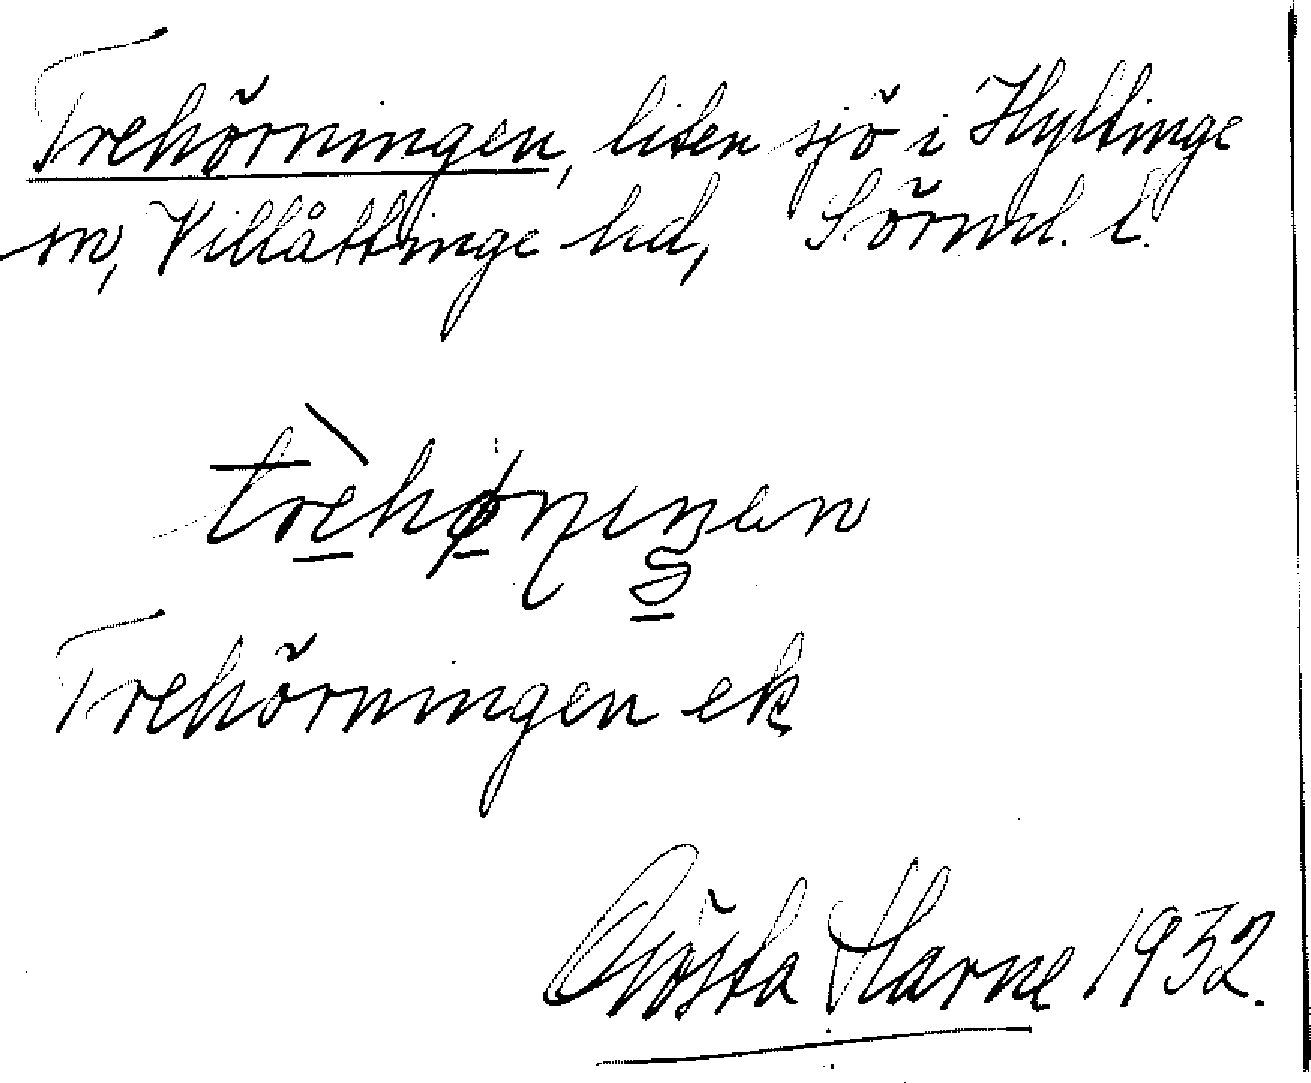 Trehörningen, liten sjö i Hyltinge
sn, Villåttinge hd, Södrml. l.
Trehörningen ek
Gösta Harne 1932.